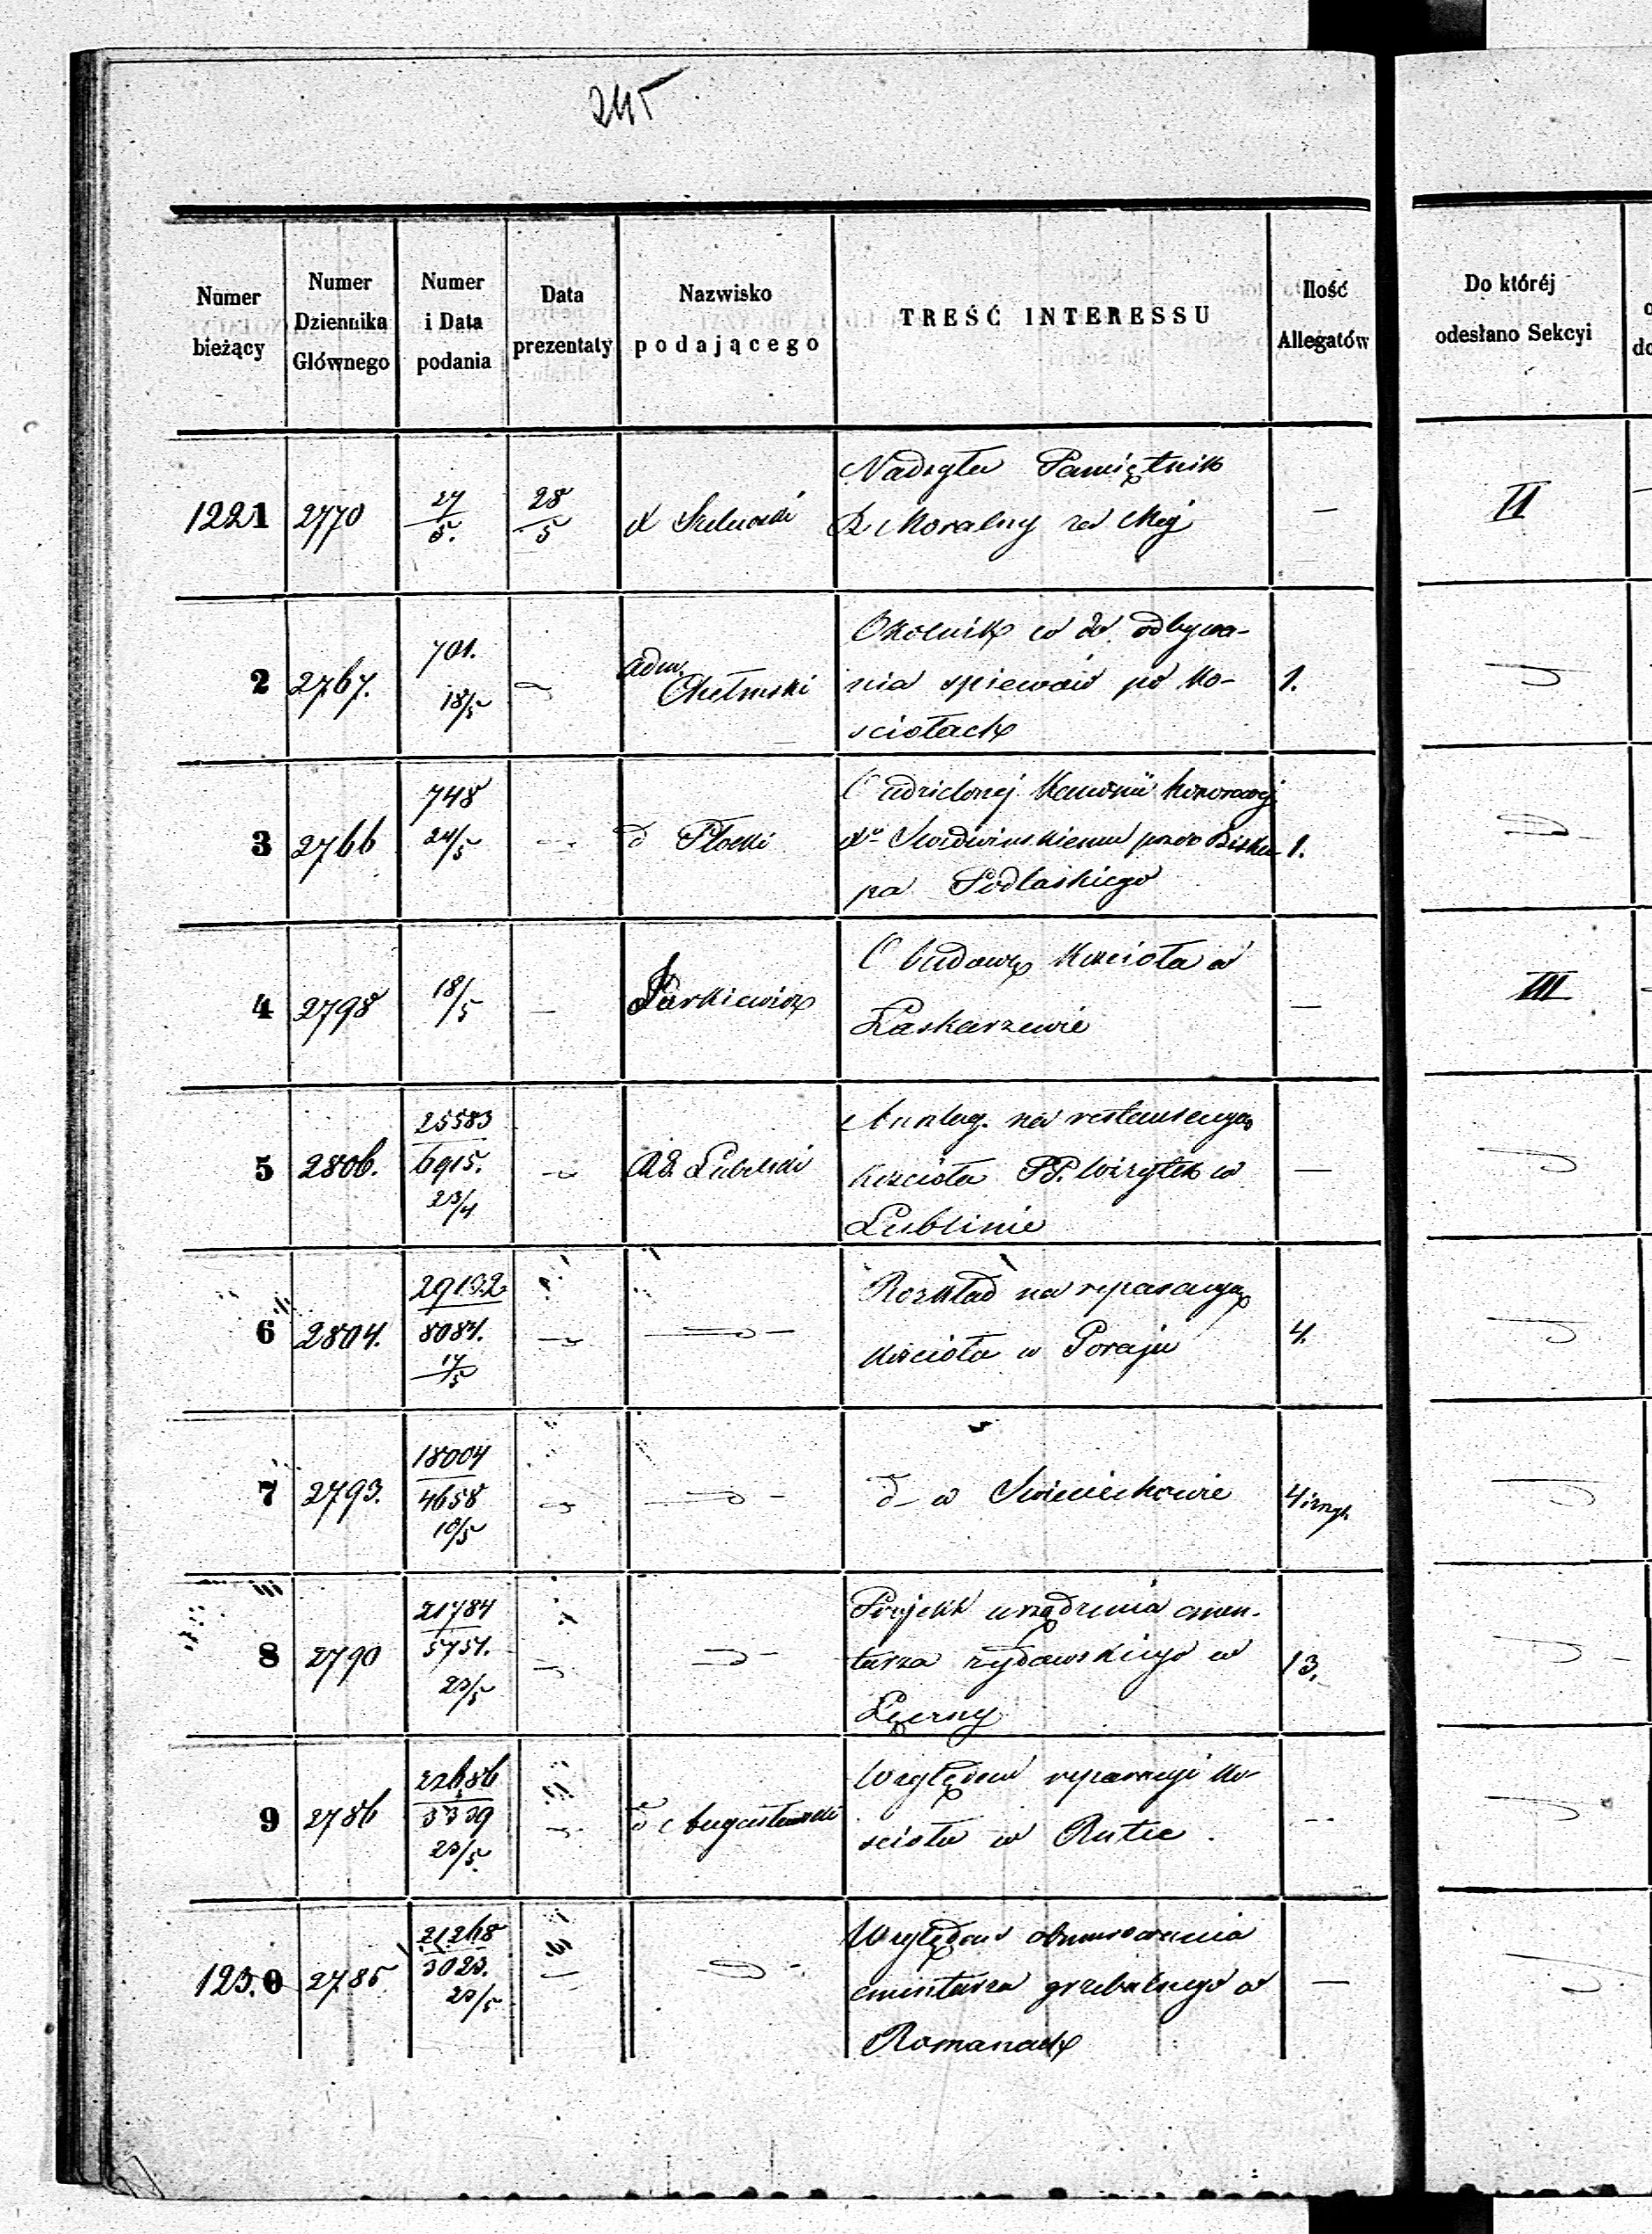 245
Numer bieżący
Numer Dziennika Głównego
Numer i Data podania
Data prezentaty
Nazwisko podającego
TREŚĆ INTERESSU
Ilość Allegatów
Do któréj odesłano Sekcyi
1221 2770 27/5. 28/5 X Nadsyła Pamiętnik — II
R. Moralny za Maj
2 2767. 701. 18/5 Adm. Chełmski Okolnik co do odbywa- 1.
nia spiewów po Ko-
sciołach
3 2766 748 24/5 d Płocki O udzielonej Kanonii honorowej 1.
Xu przez Bisku-
pa Podlaskiego
4 2798 18/5 — O budowę Kościoła w — III
Łaskarzewie
5 2806. 25583/6915. 23/4 RG. Lubelski na restauracyą —
Kościoła PP. Wizytek w
Lublinie
6 2804. 29132/8084. 17/5 Rozkład na reparacyą 4.
Kościoła w Poraju
7 2793. 18004/4658 10/5 d– w Swieciechowie 4
8 2790 21784/5751. 23/5 Projekt urządzenia cmen- 13.
tarza żydowskiego w
Łęczny
9 2786 22686/3339 23/5. d Augustowski Względem reparacyi Ko-
scioła w Rutce
1230 2785. 21268/3023. 23/5 Względem obmurowania —
cmentarza grzebalnego w
Romanach